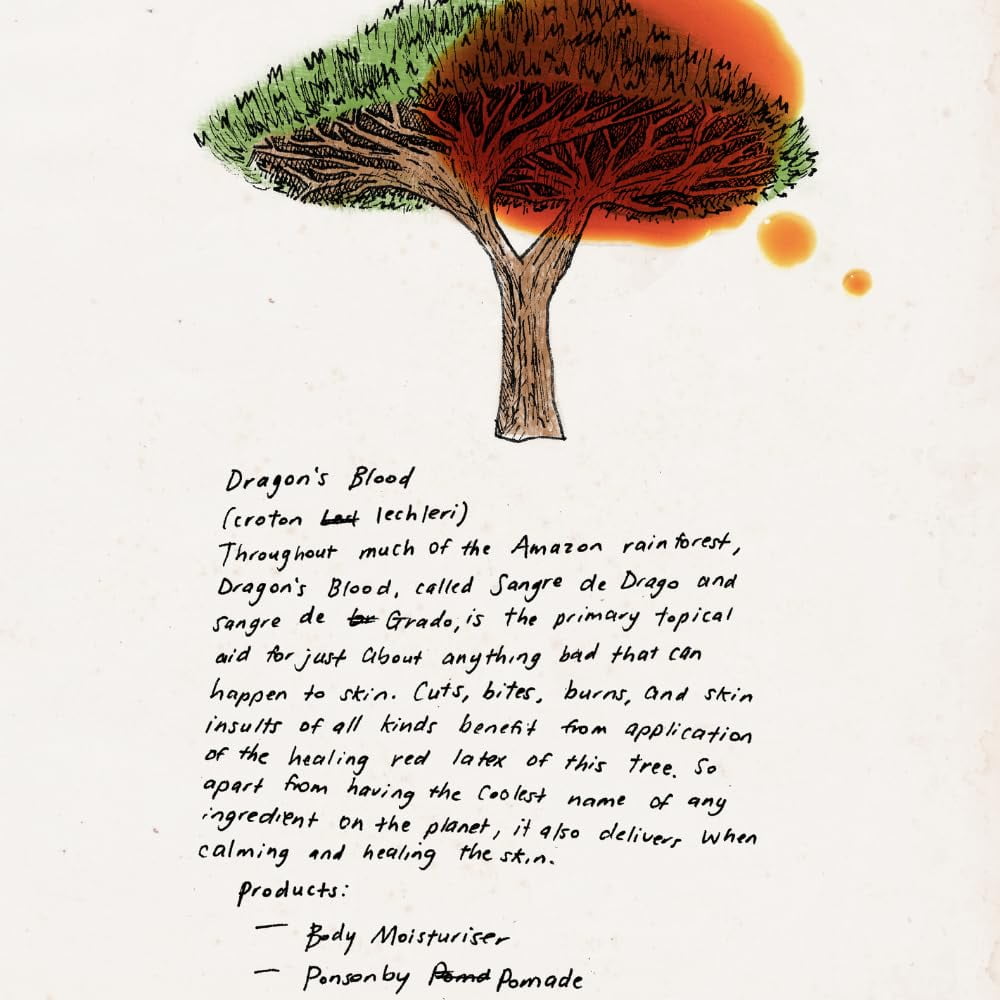 Dragon's Blood
(croton lechleri)
Throughout much of the Amazon rainforest,
Dragon's Blood, called Sangre de Drago and
sangre de Grado, is the primary topical
aid for just about anything bad that can
happen to skin. Cuts, bites, burns, and skin
insults of all kinds benefit from application
of the healing red latex of this tree. So
apart from having the coolest name of any
ingredient on the planet, it also delivers when
calming and healing the skin.
Products:
— Body Moisturiser
— Ponsonby Pomd Pomade